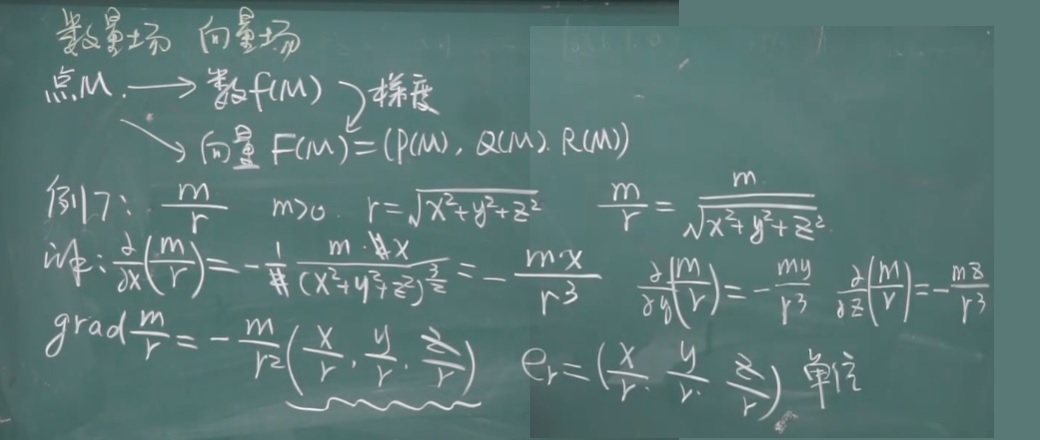 数量场 向量场
点M. → 数f(M) 梯度
→ 向量 F(M)=(P(M), Q(M). R(M))
例7: m/r m>0. r=√(x²+y²+z²) m/r = m/√(x²+y²+z²).
证: ∂/∂x(m/r)=-1/2 m·2x/(x²+y²+z²)^(3/2) = -mx/r³ ∂/∂y(m/r)=-my/r³ ∂/∂z(m/r)=-mz/r³
grad m/r = -m/r²(x/r, y/r, z/r) e_r=(x/r, y/r, z/r) 单位